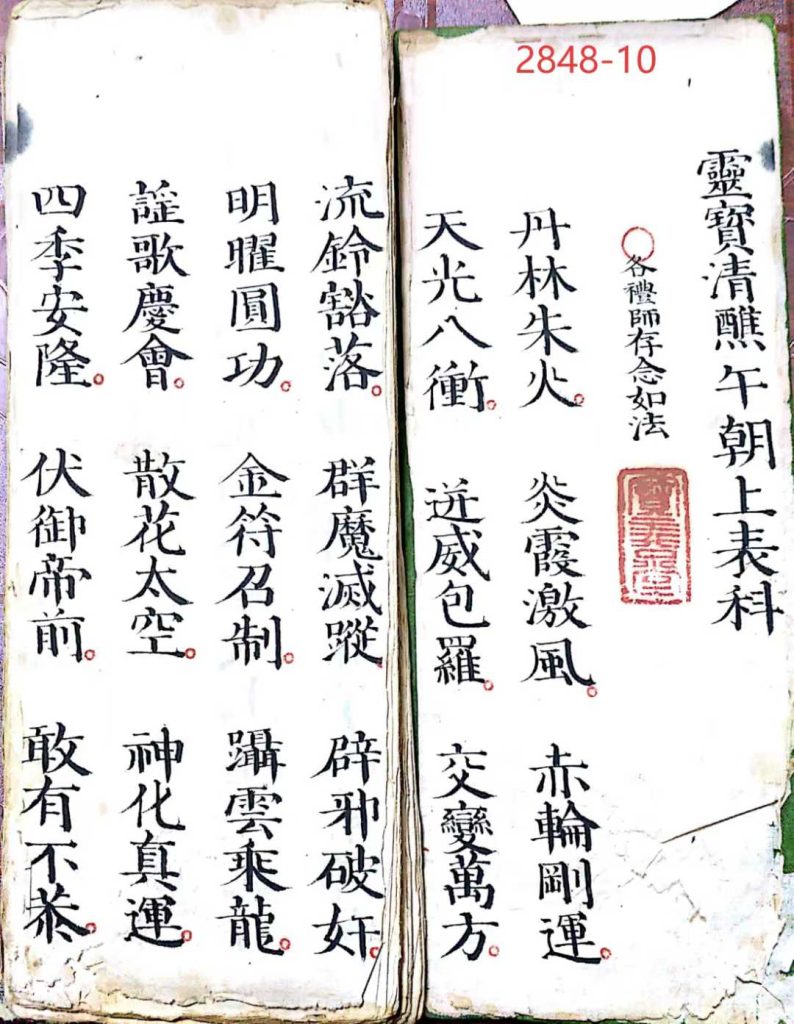 2848-10
靈寶清醮午朝上表科
各禮師存念如法
丹林朱火。炎霞激風。赤輪剛運。
天光八衝。迸威包羅。交變萬方。
流鈴豁落。群魔滅蹤。辟邪破奸。
明曜圓功。金符召制。躡雲乘龍。
謠歌慶會。散花太空。神化真運。
四季安隆。伏御帝前。敢有不恭。